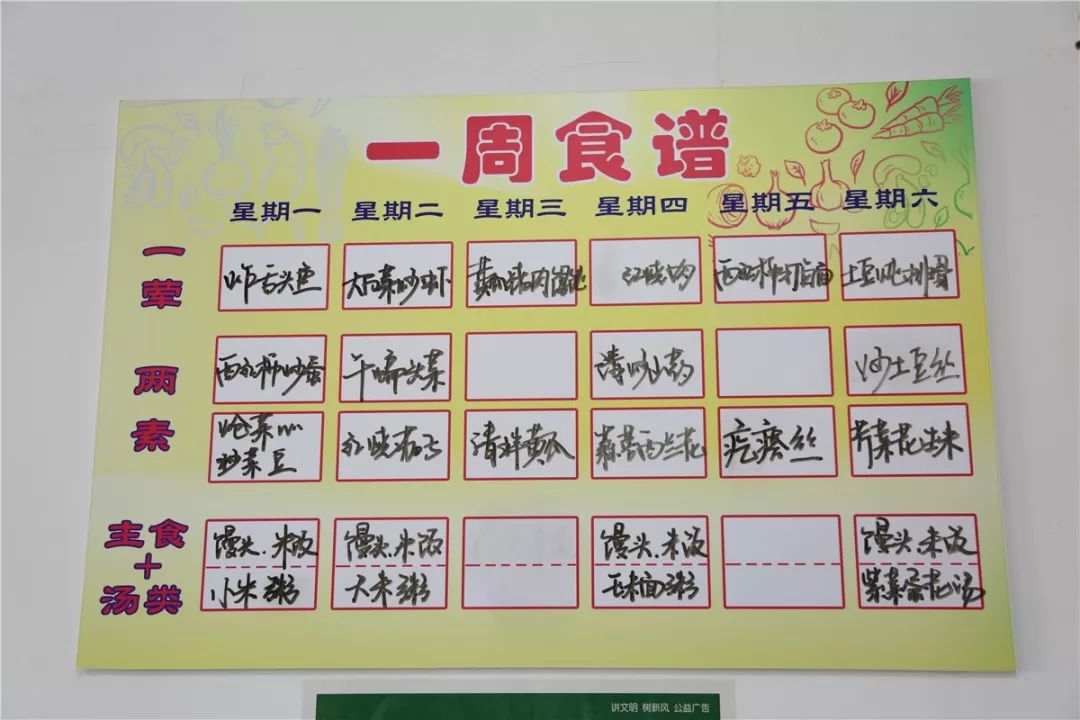 一周食谱
星期一 星期二 星期三 星期四 星期五 星期六
一荤
炸舌头鱼 大白菜炒虾 黄瓜猪肉馄饨 红烧肉 西红柿打卤面 土豆炖排骨
两素
西红柿炒蛋 干锅头菜 清炒山药 炒土豆丝
炒素豆 红烧茄子 清拌黄瓜 蒜蓉西兰花 疙瘩丝 芹菜花生米
主食+汤类
馒头.米饭 馒头.米饭 馒头.米饭 馒头.米饭
小米粥 大米粥 玉米面粥 紫菜蛋花汤
讲文明 树新风 公益广告